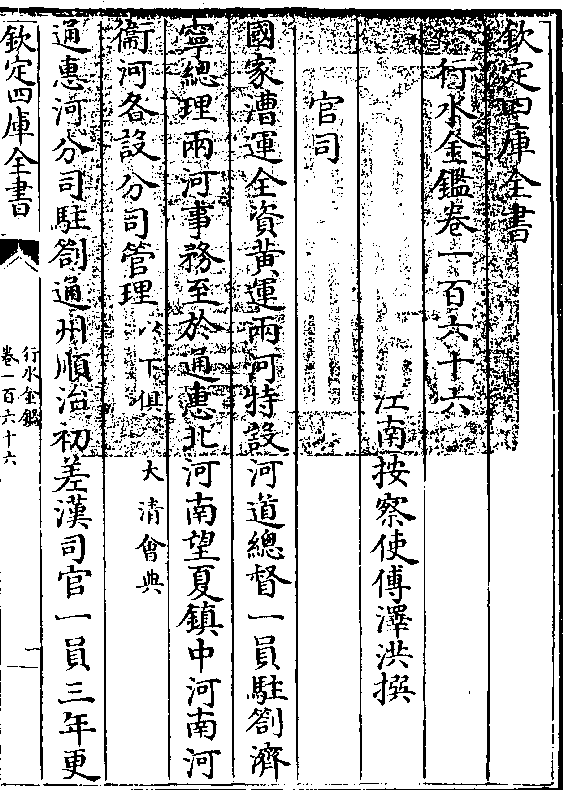 欽定四庫全書
行水金鑑卷一百六十六
江南按察使傅澤洪撰
官司
國家漕運全資黃運兩河特設河道總督一員駐劄濟
寧總理兩河事務至於通惠北河南望夏鎮中河南河
衞河各設分司管理以下俱大清會典
通惠河分司駐劄通州順治初差漢司官一員三年更
欽定四庫全書
行水金鑑
卷一百六十六
一